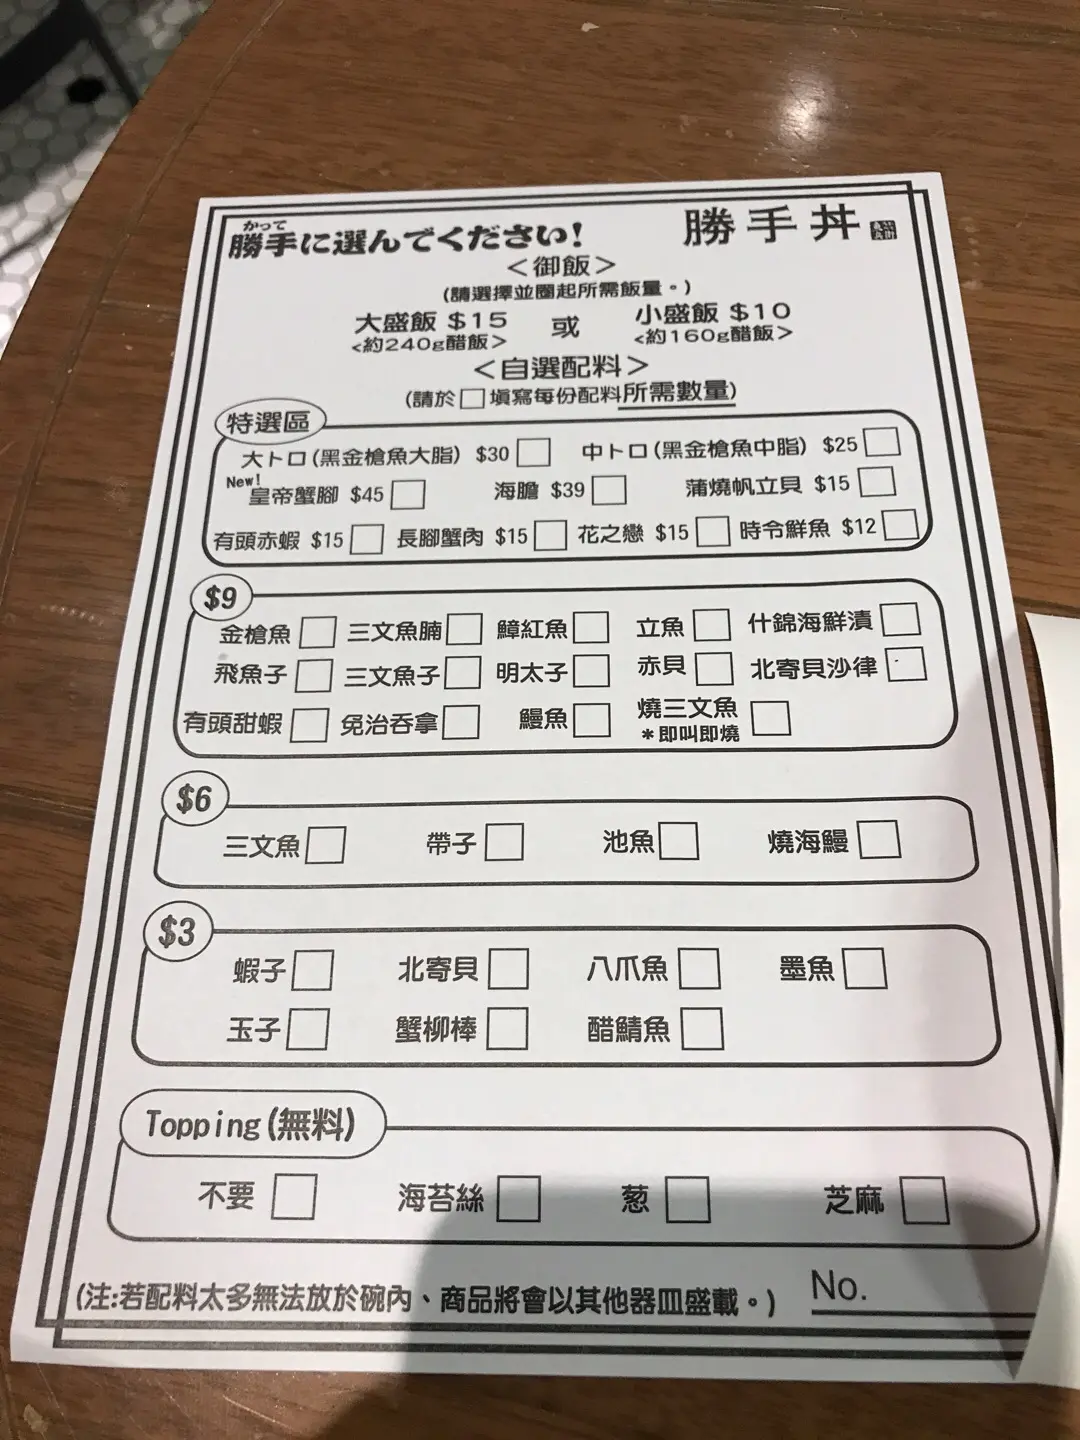 かって
勝手に選んでください! 勝手丼
＜御飯＞
(請選擇並圈起所需飯量。)
大盛飯 $15 或 小盛飯 $10
<約240g醋飯> <約160g醋飯>
＜自選配料＞
(請於□填寫每份配料所需數量)
特選區
大トロ(黑金槍魚大脂) $30 中トロ(黑金槍魚中脂) $25
New!
皇帝蟹腳 $45 海膽 $39 蒲燒帆立貝 $15
有頭赤蝦 $15 長腳蟹肉 $15 花之戀 $15 時令鮮魚 $12
$9
金槍魚 三文魚腩 鱆紅魚 立魚 什錦海鮮漬
飛魚子 三文魚子 明太子 赤貝 北寄貝沙律
有頭甜蝦 免治吞拿 鰻魚 燒三文魚
*即叫即燒
$6
三文魚 帶子 池魚 燒海鰻
$3
蝦子 北寄貝 八爪魚 墨魚
玉子 蟹柳棒 醋鯖魚
Topping(無料)
不要 海苔絲 葱 芝麻
(注:若配料太多無法放於碗內、商品將會以其他器皿盛載。) No.